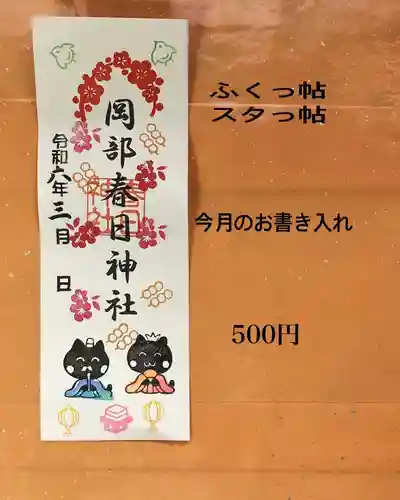 岡部春日神社
令和六年三月 日
ふくっ帖
スタっ帖
今月のお書き入れ
500円